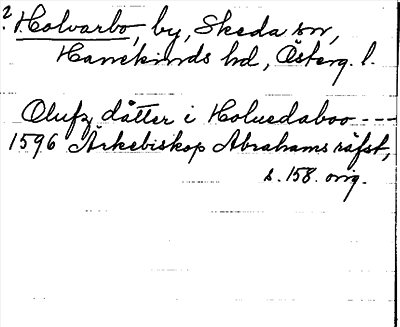 ? Holvarbo, by, Skeda sn,
Hanekinds hd, Österg. l.
Olufz dåtter i Holuedaboo ---
1596 Ärkebiskop Abrahams räfst,
s. 158. orig.